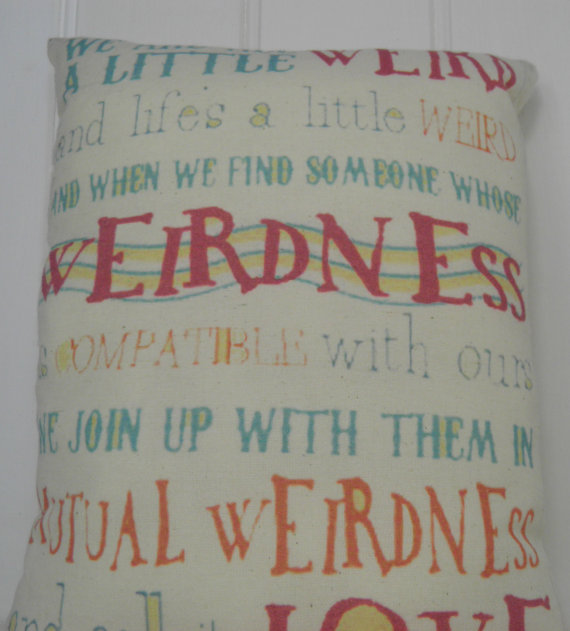 WE ARE ALL
A LITTLE WEIRD
and life's a little WEIRD
AND WHEN WE FIND SOMEONE WHOSE
WEIRDNESS
is COMPATIBLE with ours
WE JOIN UP WITH THEM IN
MUTUAL WEIRDNESS
and call it LOVE